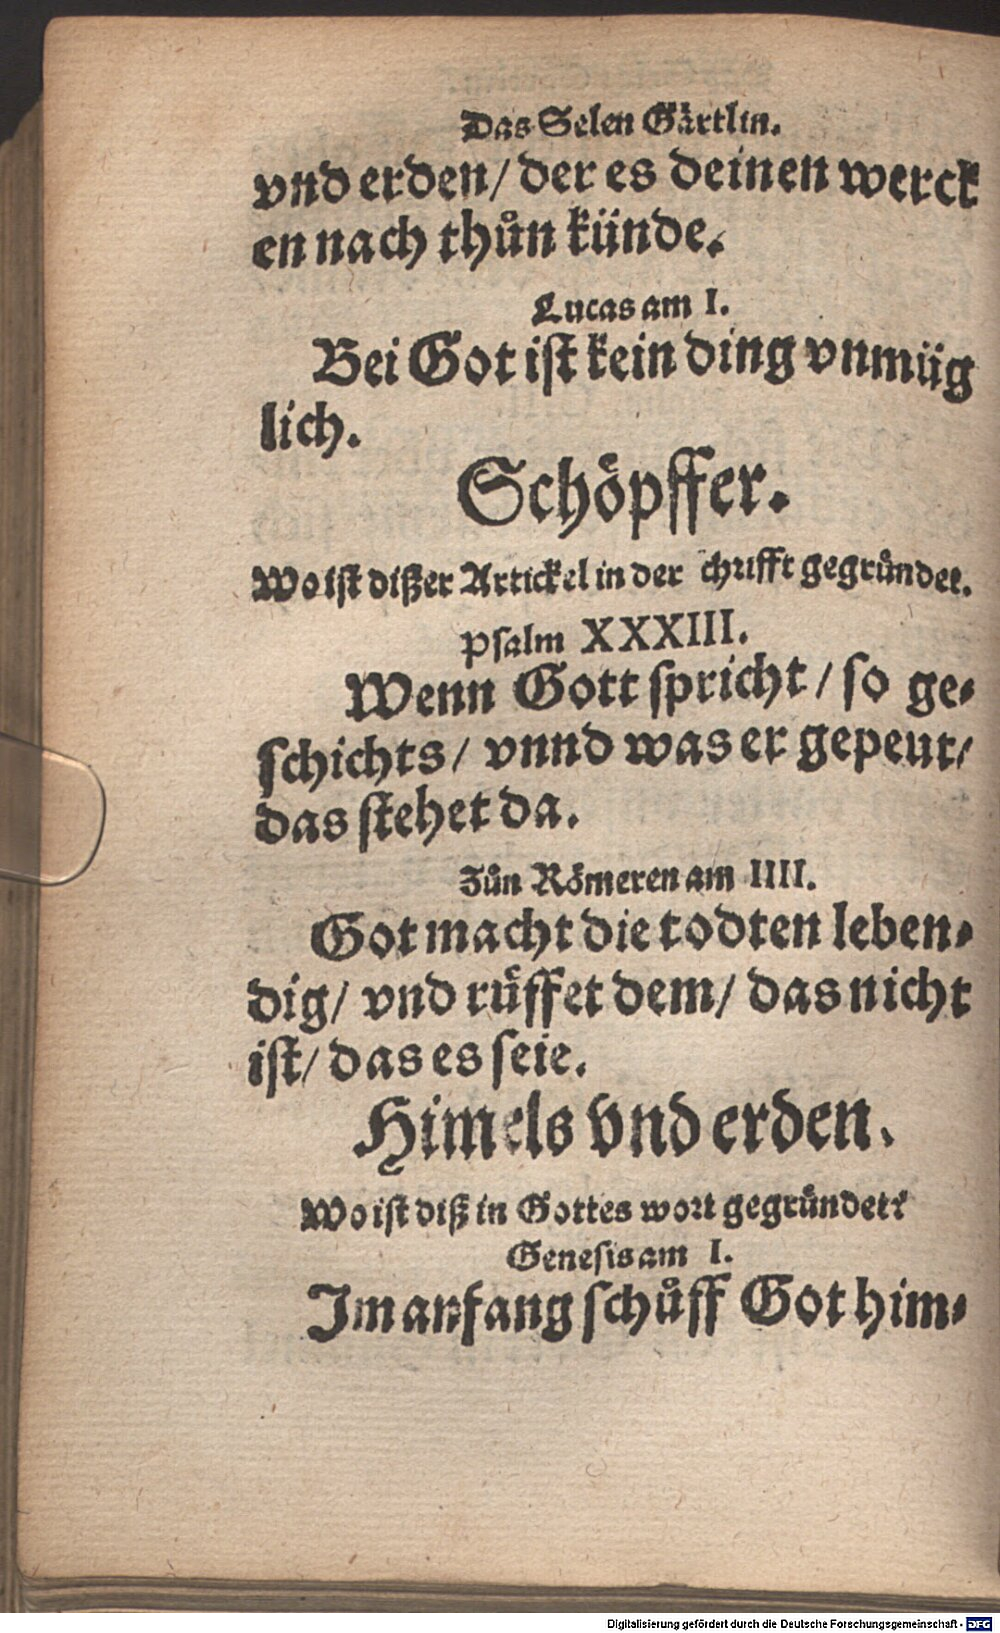 Das Selen Gärtlin.
vnd erden/ der es deinen werck
en nach thůn künde.
Lucas am I.
Bei Got iſt kein ding vnmüg
lich.
Schöpffer.
Wo iſt dißer Artickel in der chrifft gegründet.
Pſalm XXXIII.
Wenn Gott ſpricht/ ſo ge⸗
ſchichts/ vnnd was er gepeut/
das ſtehet da.
Zůn Römeren am IIII.
Got macht die todten leben⸗
dig/ vnd rüffet dem/ das nicht
iſt/ das es ſeie.
Himels vnd erden.
Wo iſt diß in Gottes wort gegründet?
Geneſis am I.
Im anfang ſchůff Got him⸗
Digitalisierung gefördert durch die Deutsche Forschungsgemeinschaft - DFG